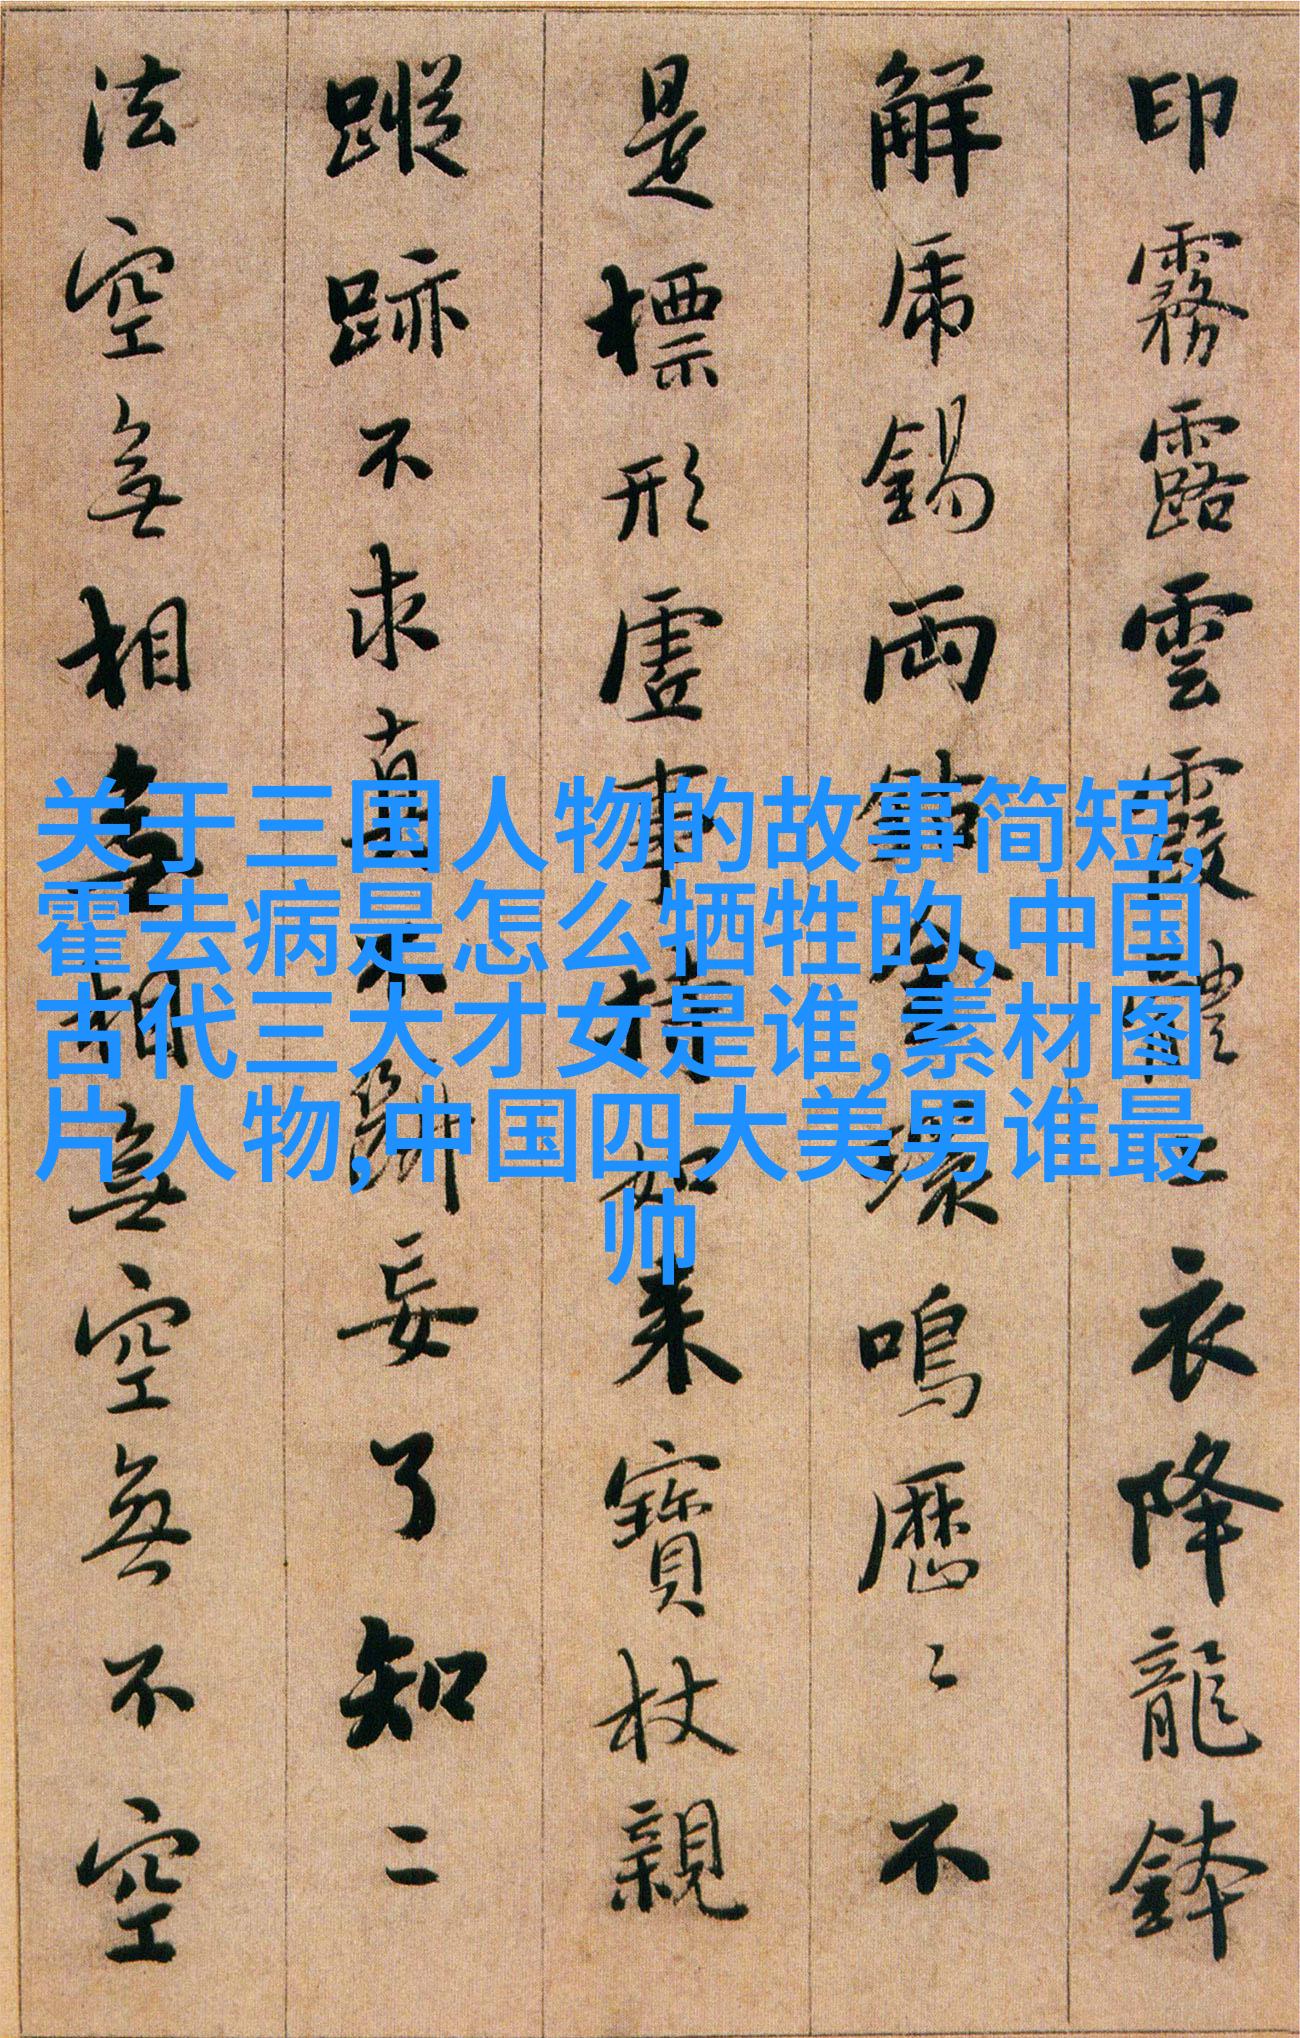 印霧露雲霞體上衣降龍鉢
解虎錫兩鈷金環鳴歷〻不
是標形虛事持如來寶杖親
蹤跡不求真不斷妄了知二
法空無相無相無空無不空
关于三国人物的故事简短,
霍去病是怎么牺牲的,中国
古代三大才女是谁,素材图
片人物,中国四大美男谁最
帅